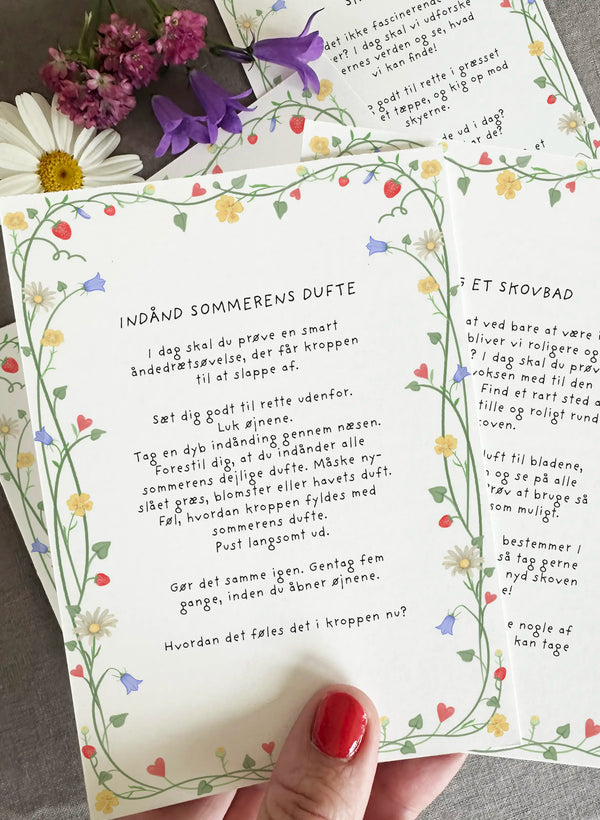 det ikke fascinerende
er? I dag skal vi udforske
ernes verden og se, hvad
vi kan finde!
godt til rette i græsset
et tæppe, og kig op mod
skyerne.
de ud i dag?
ar de?
INDÅND SOMMERENS DUFTE
I dag skal du prøve en smart
åndedrætsøvelse, der får kroppen
til at slappe af.
Sæt dig godt til rette udenfor.
Luk øjnene.
Tag en dyb indånding gennem næsen.
Forestil dig, at du indånder alle
sommerens dejlige dufte. Måske ny-
slået græs, blomster eller havets duft.
Føl, hvordan kroppen fyldes med
sommerens dufte.
Pust langsomt ud.
Gør det samme igen. Gentag fem
gange, inden du åbner øjnene.
Hvordan det føles det i kroppen nu?
ET SKOVBAD
at ved bare at være i
bliver vi roligere og
? I dag skal du prøv
voksen med til den
Find et rart sted a
tille og roligt rund
oven.
uft til bladene,
n og se på alle
Prøv at bruge så
som muligt.
bestemmer I
så tag gerne
nyd skoven
e!
e nogle af
kan tage